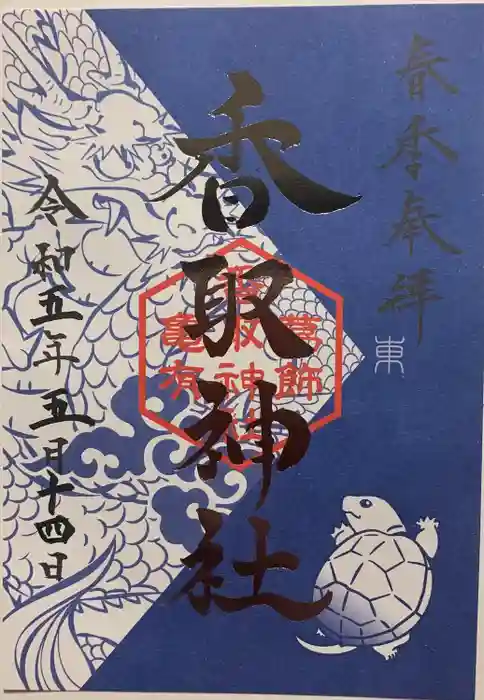 春季奉拝
東
香取神社
葛飾
香取神社
亀有
令和五年五日十四日